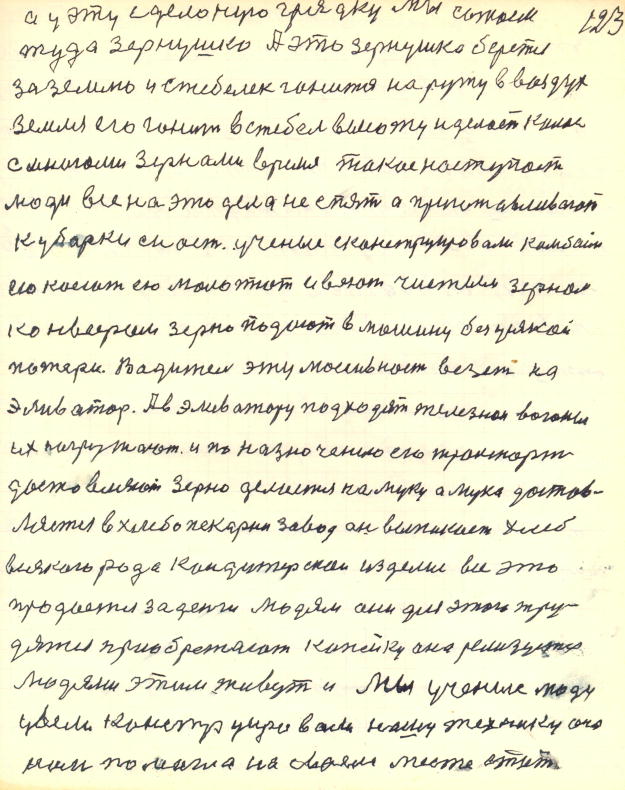 а у эту сделоную грядку Мы сажаем 123
туда Зернушко А это зернушко берется
за землю и стебелек гонится на ружу в воздух
Земля его гонит в стебел высоту и делает колас
с многоми Зернами время такое наступает
люди все на это дела не спят а приготавливают
к уборки снаст. ученые сконструировали комбайн
ею косят ею молотят и веют чистым зерном
конвеером зерно подают в машину без усякой
потери. Водител эту масивност везет на
Эливатор. А в эливатору подходят железная вогоны
их погружают. и по назночению его транспорт
доставляют Зерно делается на муку а мука достав-
ляется в хлебопекарни завод ан выпикает хлеб
всякого рода Кондитерскаи изделие все это
продается за денги людям они для этого тру-
дятся приобретают копейку она реализуется
Людями этим живут и Мы ученые люди
усели Конструировали нашу технику она
нам помагла на своем месте стоят